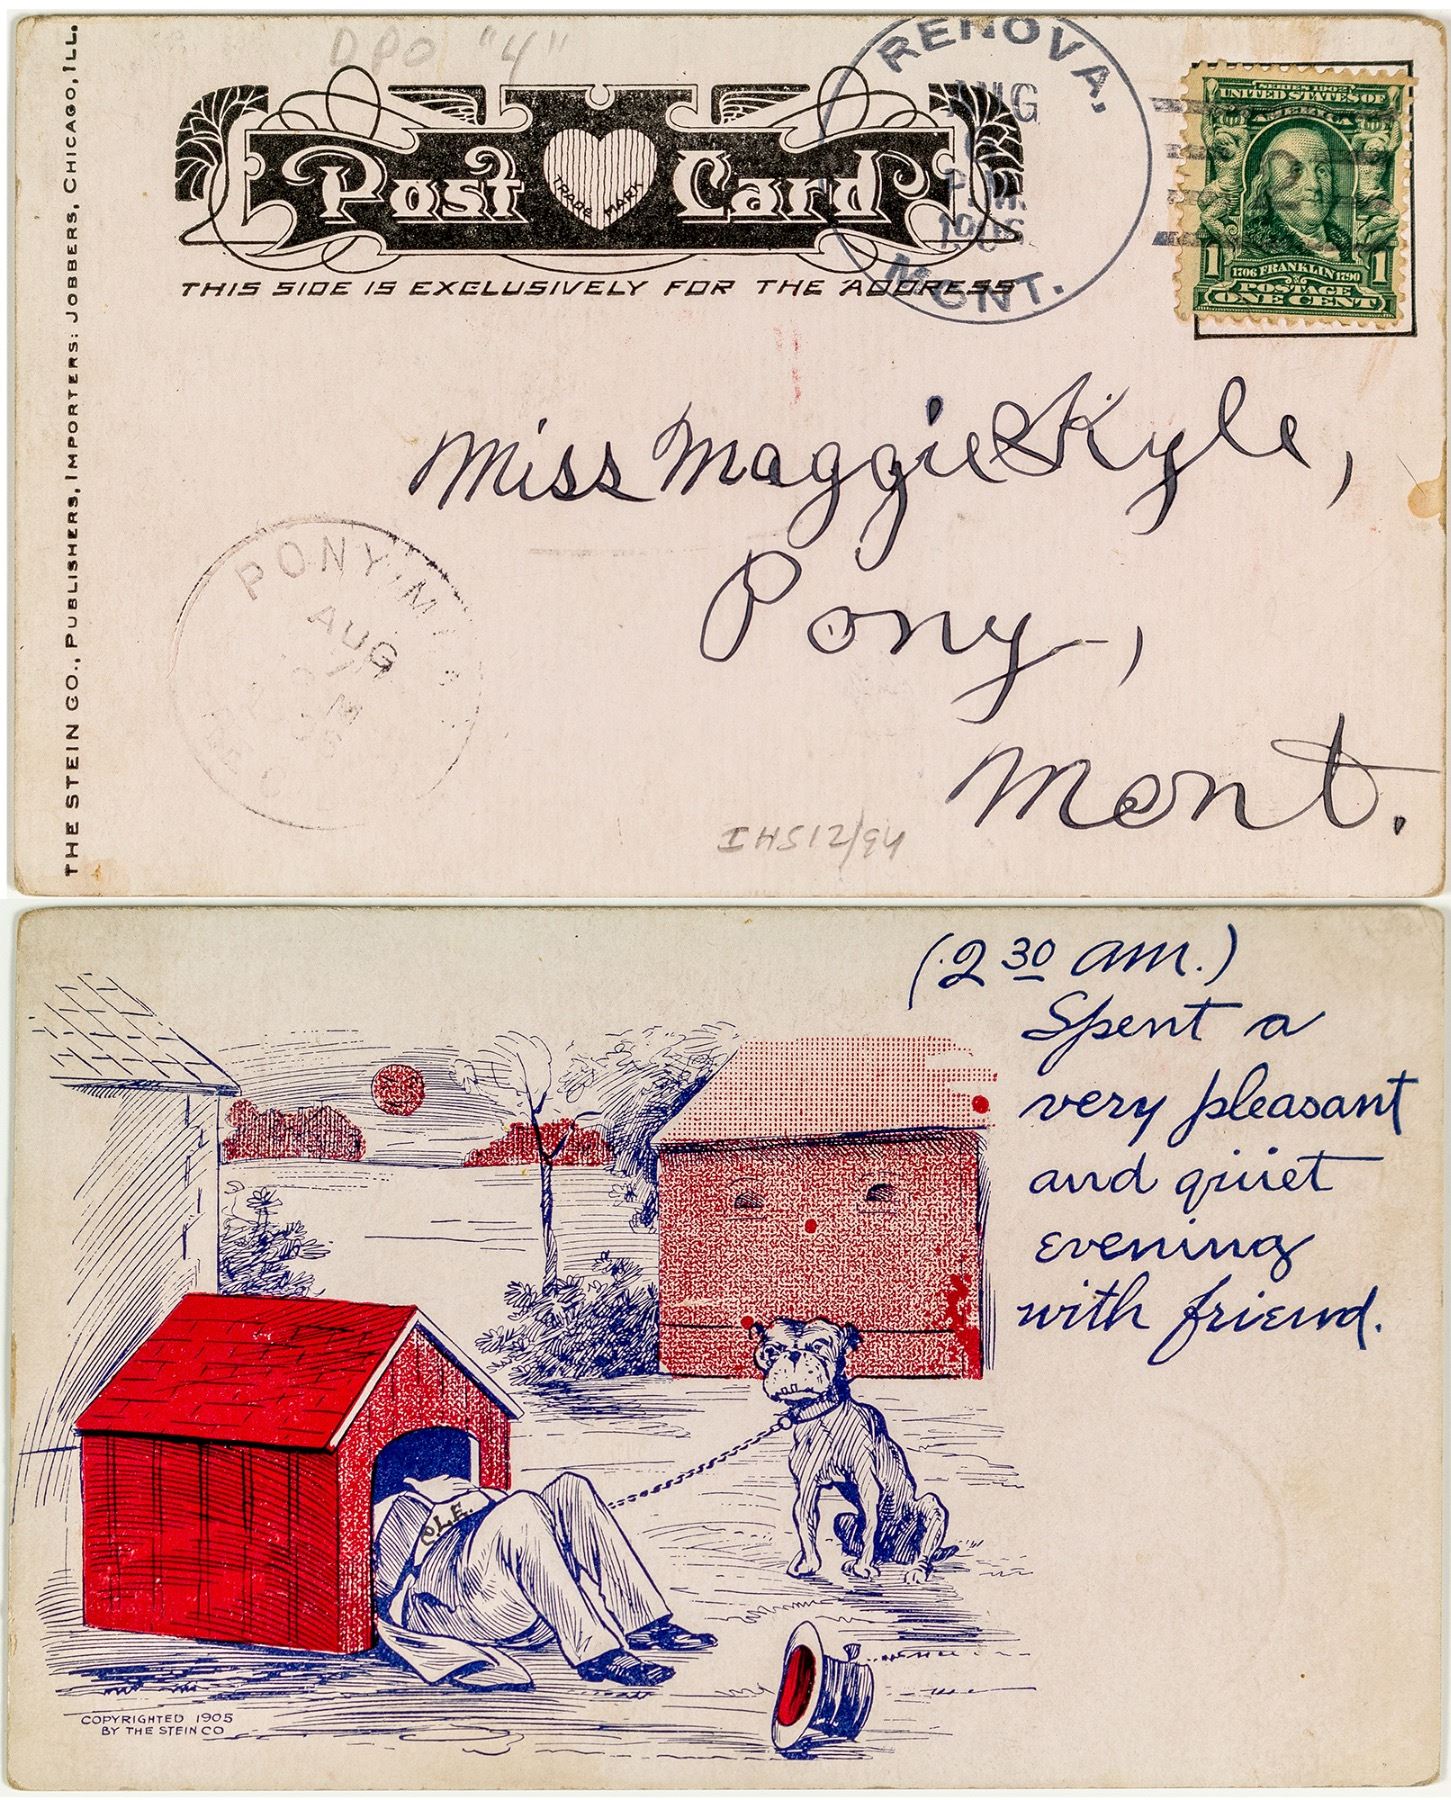 DPO "4"
Post Card
TRADE MARK
THIS SIDE IS EXCLUSIVELY FOR THE ADDRESS
THE STEIN CO., PUBLISHERS, IMPORTERS: JOBBERS, CHICAGO, ILL.
RENOVA,
AUG
P.M.
MONT.
UNITED STATES OF
AMERICA
2
1 1706 FRANKLIN 1790 1
POSTAGE
ONE CENT
Miss Maggie Kyle,
Pony,
Mont.
PONY, M
AUG
7
M
REC
IHS12/94
(2 30 am.)
Spent a
very pleasant
and quiet
evening
with friend.
O.L.E.
COPYRIGHTED 1905
BY THE STEIN CO